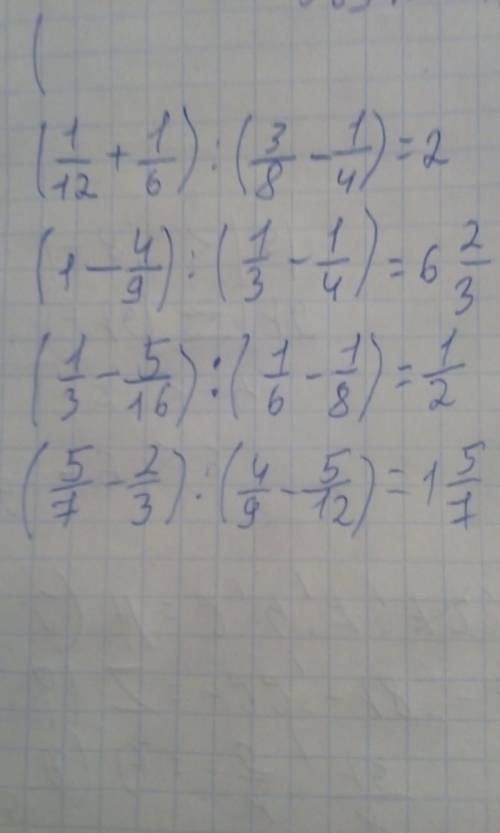 (
(1/12 + 1/6) : (3/8 - 1/4) = 2
(1 - 4/9) : (1/3 - 1/4) = 6 2/3
(1/3 - 5/16) : (1/6 - 1/8) = 1/2
(5/7 - 2/3) : (4/9 - 5/12) = 1 5/7